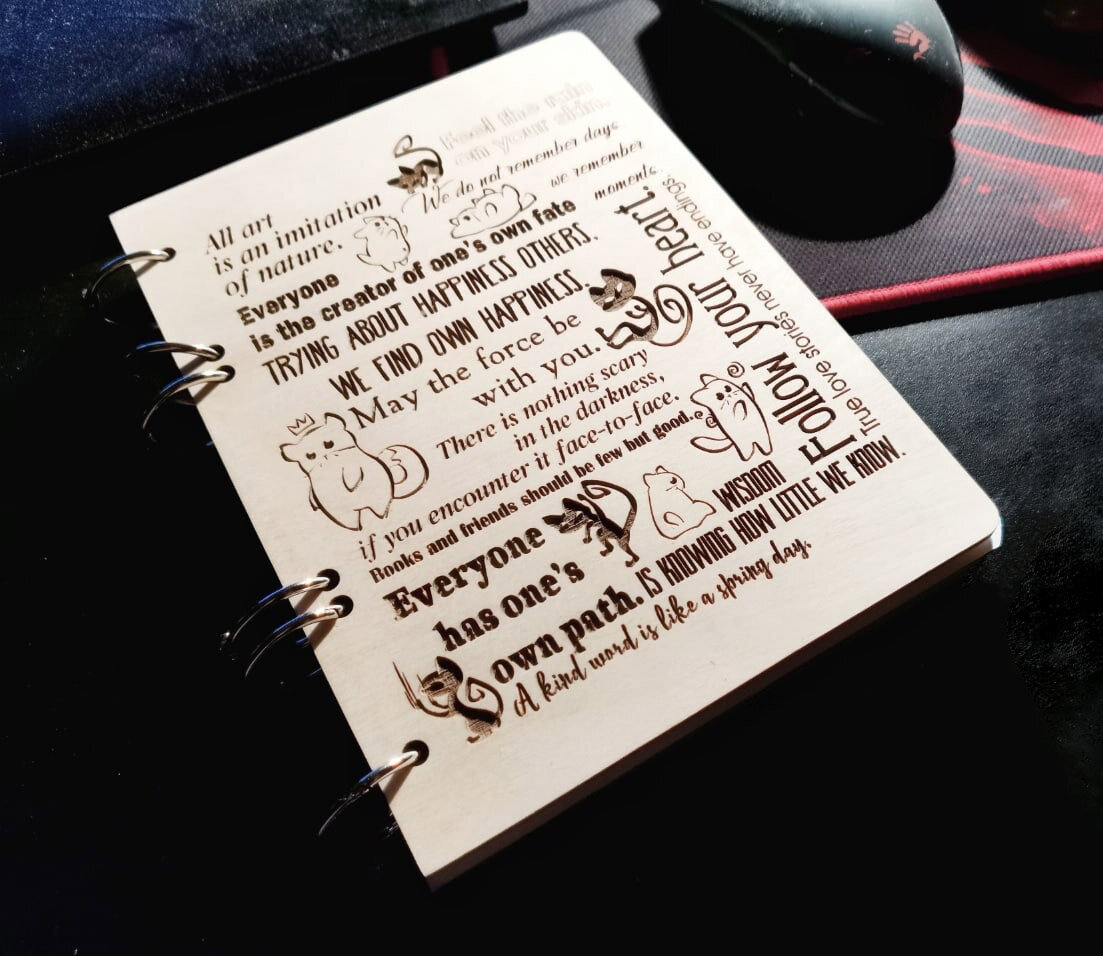 Feel the rain
on your skin.
We do not remember days
we remember
moments.
All art
is an imitation
of nature.
Everyone
is the creator of one's own fate
TRYING ABOUT HAPPINESS OTHERS,
WE FIND OWN HAPPINESS.
May the force be
with you.
There is nothing scary
in the darkness,
if you encounter it face-to-face.
Books and friends should be few but good.
Follow your heart.
True love stories never have endings.
Everyone
has one's
own path.
WISDOM
IS KNOWING HOW LITTLE WE KNOW.
A kind word is like a spring day.